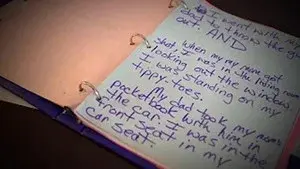 I went with my
dad he knows the gu
out. AND
shot. when my mom got
I was in the living room
looking out the window
I was standing on my
tippy-toes.
My dad took my moms
pocketbook with him in
the car. I was in the
front seat in my
car seat.